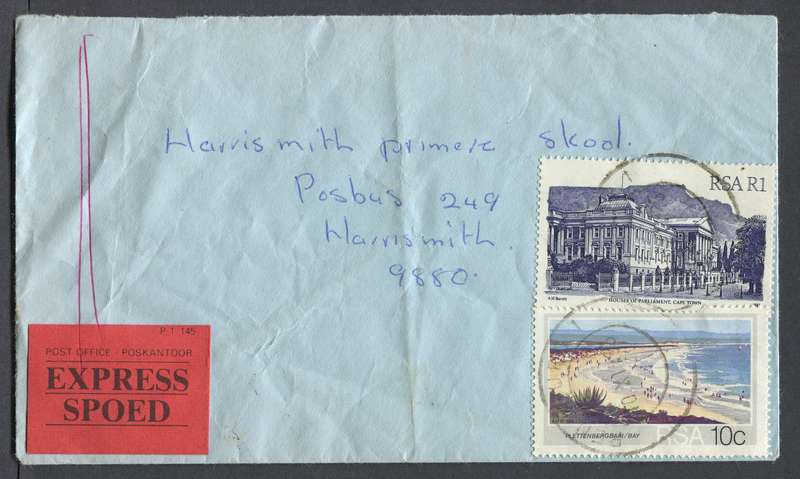 Harrismith primere skool.
Posbus 249
Harrismith.
9880.
RSA R1
A.H. Barrett
HOUSES OF PARLIAMENT, CAPE TOWN
PLETTENBERGBAAI/BAY
RSA 10c
P-T 145
POST OFFICE - POSKANTOOR
EXPRESS
SPOED